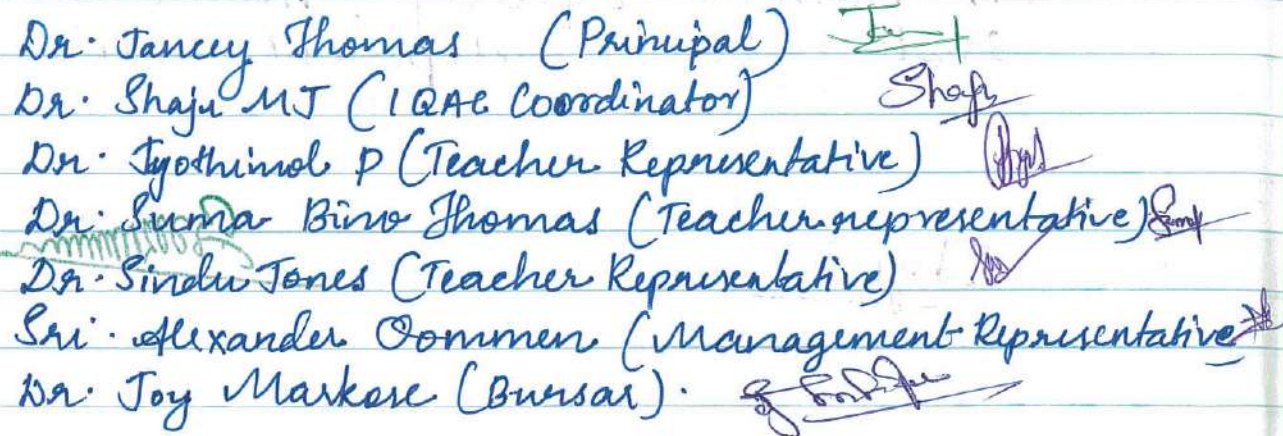 Dr. Jancey Thomas (Principal)
Dr. Shaju MJ (IQAC Coordinator) Shaju
Dr. Jyothimol P (Teacher Representative)
Dr. Suma Bino Thomas (Teacher representative)
Dr. Sindu Jones (Teacher Representative)
Sri. Alexander Oommen (Management Representative
Dr. Joy Markose (Bursar).